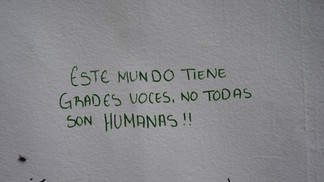 ESTE MUNDO TIENE
GRADES VOCES, NO TODAS
SON HUMANAS!!